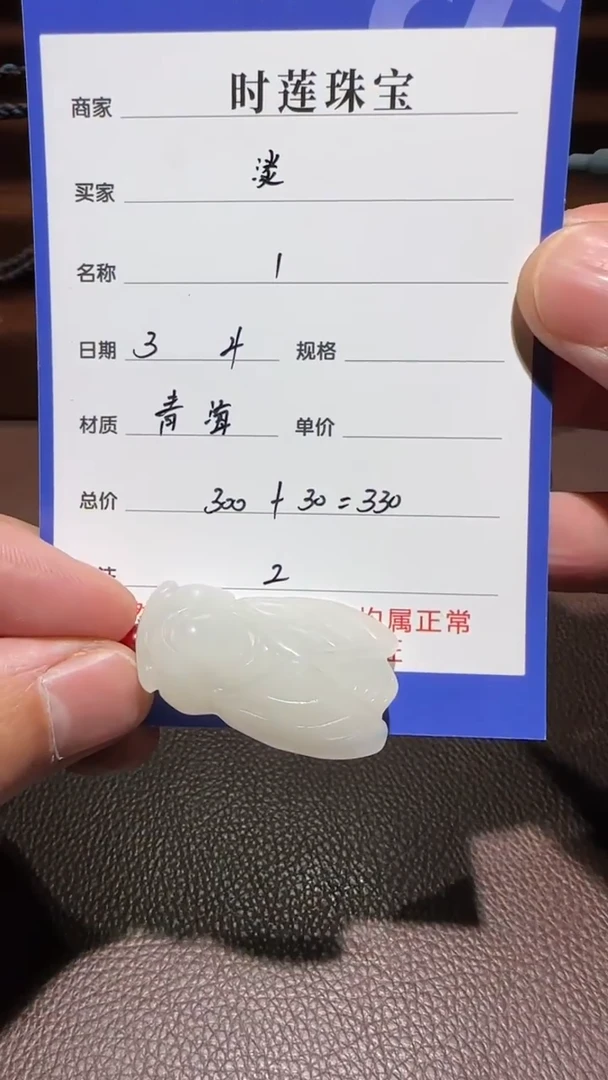 商家 时莲珠宝
买家
名称 1
日期 3 4 规格
材质 青海 单价
总价 300 + 30 = 330
2
均属正常